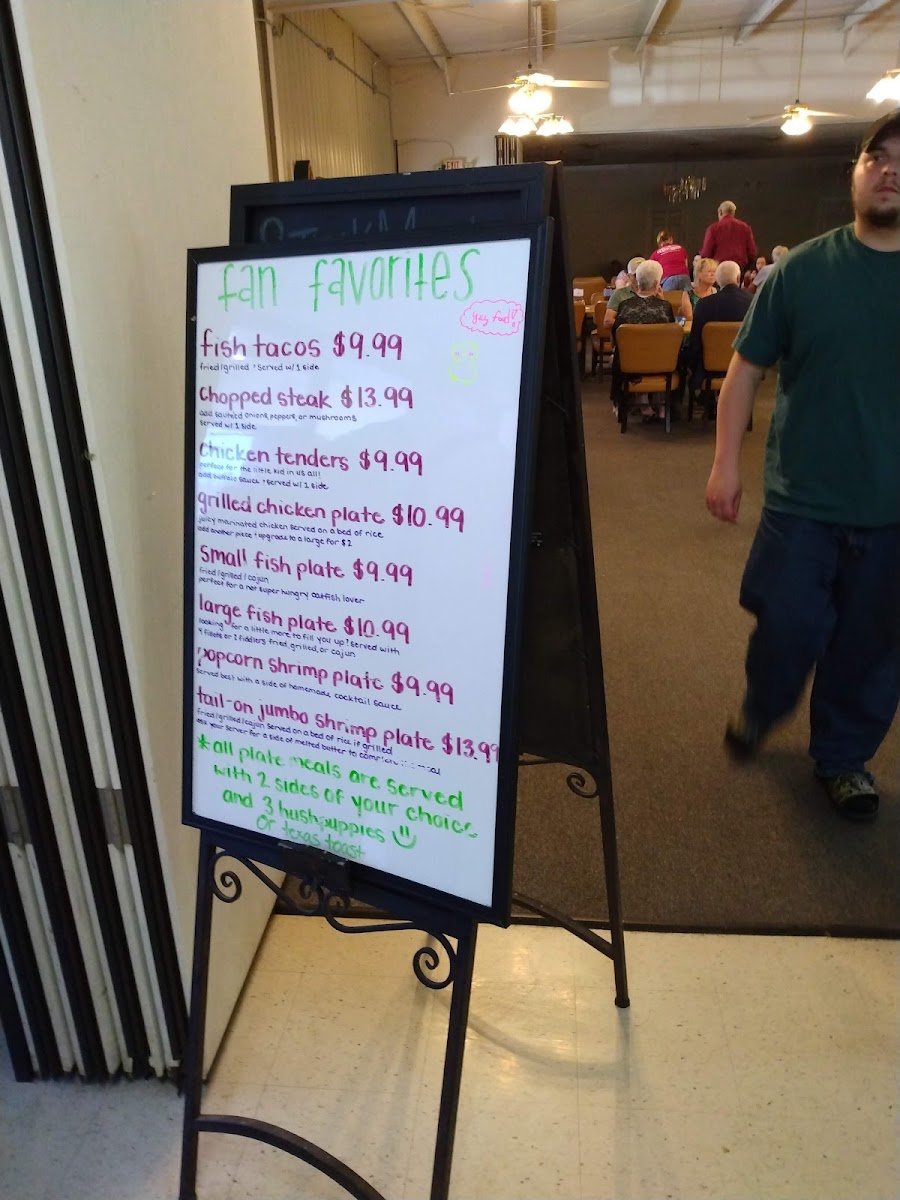 fan favorites
yay food!
fish tacos $9.99
fried/grilled served w/ 1 side
chopped steak $13.99
add sautéed onions, peppers, or mushrooms
served w/ 1 side
chicken tenders $9.99
perfect for the little kid in us all!
add buffalo sauce served w/ 1 side
grilled chicken plate $10.99
juicy marinated chicken served on a bed of rice
add another piece + upgrade to a large for $2
small fish plate $9.99
fried/grilled/cajun
perfect for a not super hungry catfish lover
large fish plate $10.99
looking for a little more to fill you up? served with
4 fillets or 2 fiddlers fried, grilled, or cajun
popcorn shrimp plate $9.99
served best with a side of homemade cocktail sauce
tail-on jumbo shrimp plate $13.99
fried/grilled/cajun served on a bed of rice if grilled
ask your server for a side of melted butter to
*all plate meals are served
with 2 sides of your choice
and 3 hushpuppies
or texas toast
EXIT